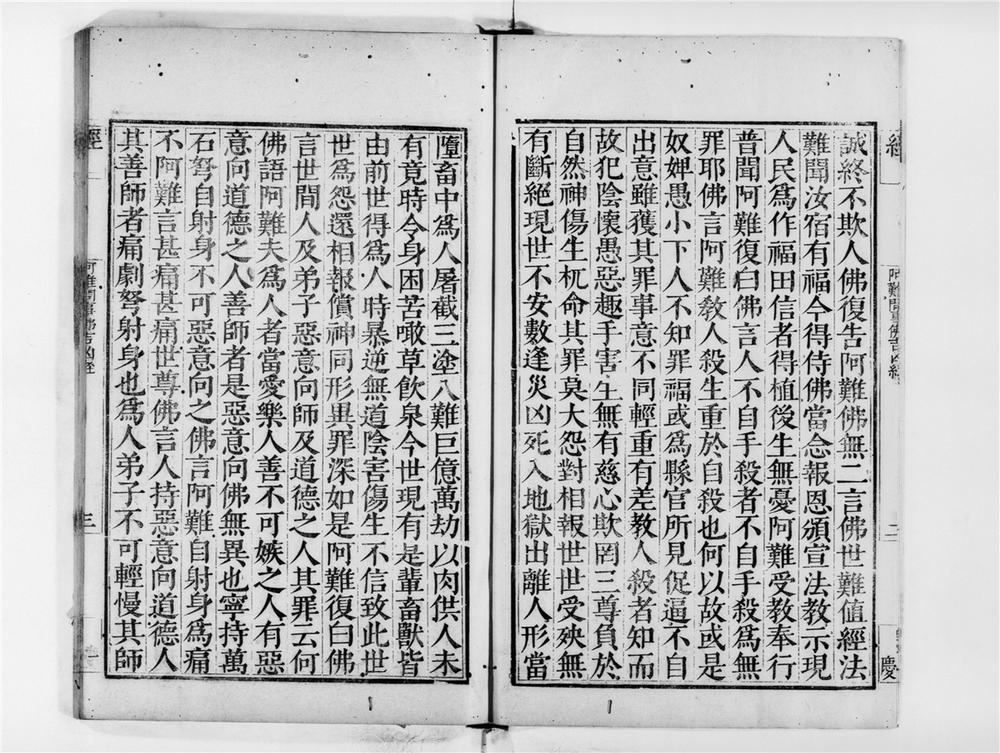 誠終不欺人佛復告阿難佛無二言佛世難值經法
難聞汝宿有福今得侍佛當念報恩頒宣法教示現
人民爲作福田信者得植後生無憂阿難受教奉行
普聞阿難復白佛言人不自手殺者不自手殺爲無
罪耶佛言阿難教人殺生重於自殺也何以故或是
奴婢愚小下人不知罪福或爲縣官所見促逼不自
出意雖獲其罪事意不同輕重有差教人殺者知而
故犯陰懷愚惡趣手害生無有慈心欺罔三尊負於
自然神傷生杌命其罪莫大怨對相報世世受殃無
有斷絕現世不安數逢災凶死入地獄出離人形當
墮畜中爲人屠截三塗八難巨億萬劫以肉供人未
有竟時今身困苦噉草飲泉今世現有是輩畜獸皆
由前世得爲人時暴逆無道陰害傷生不信致此世
世爲怨還相報償神同形異罪深如是阿難復白佛
言世間人及弟子惡意向師及道德之人其罪云何
佛語阿難夫爲人者當愛樂人善不可嫉之人有惡
意向道德之人善師者是惡意向佛無異也寧持萬
石弩自射身不可惡意向之佛言阿難自射身爲痛
不阿難言甚痛甚痛世尊佛言人持惡意向道德人
其善師者痛劇弩射身也爲人弟子不可輕慢其師
經
阿難問事佛吉凶經
二
慶
經
阿難問事佛吉凶經
三